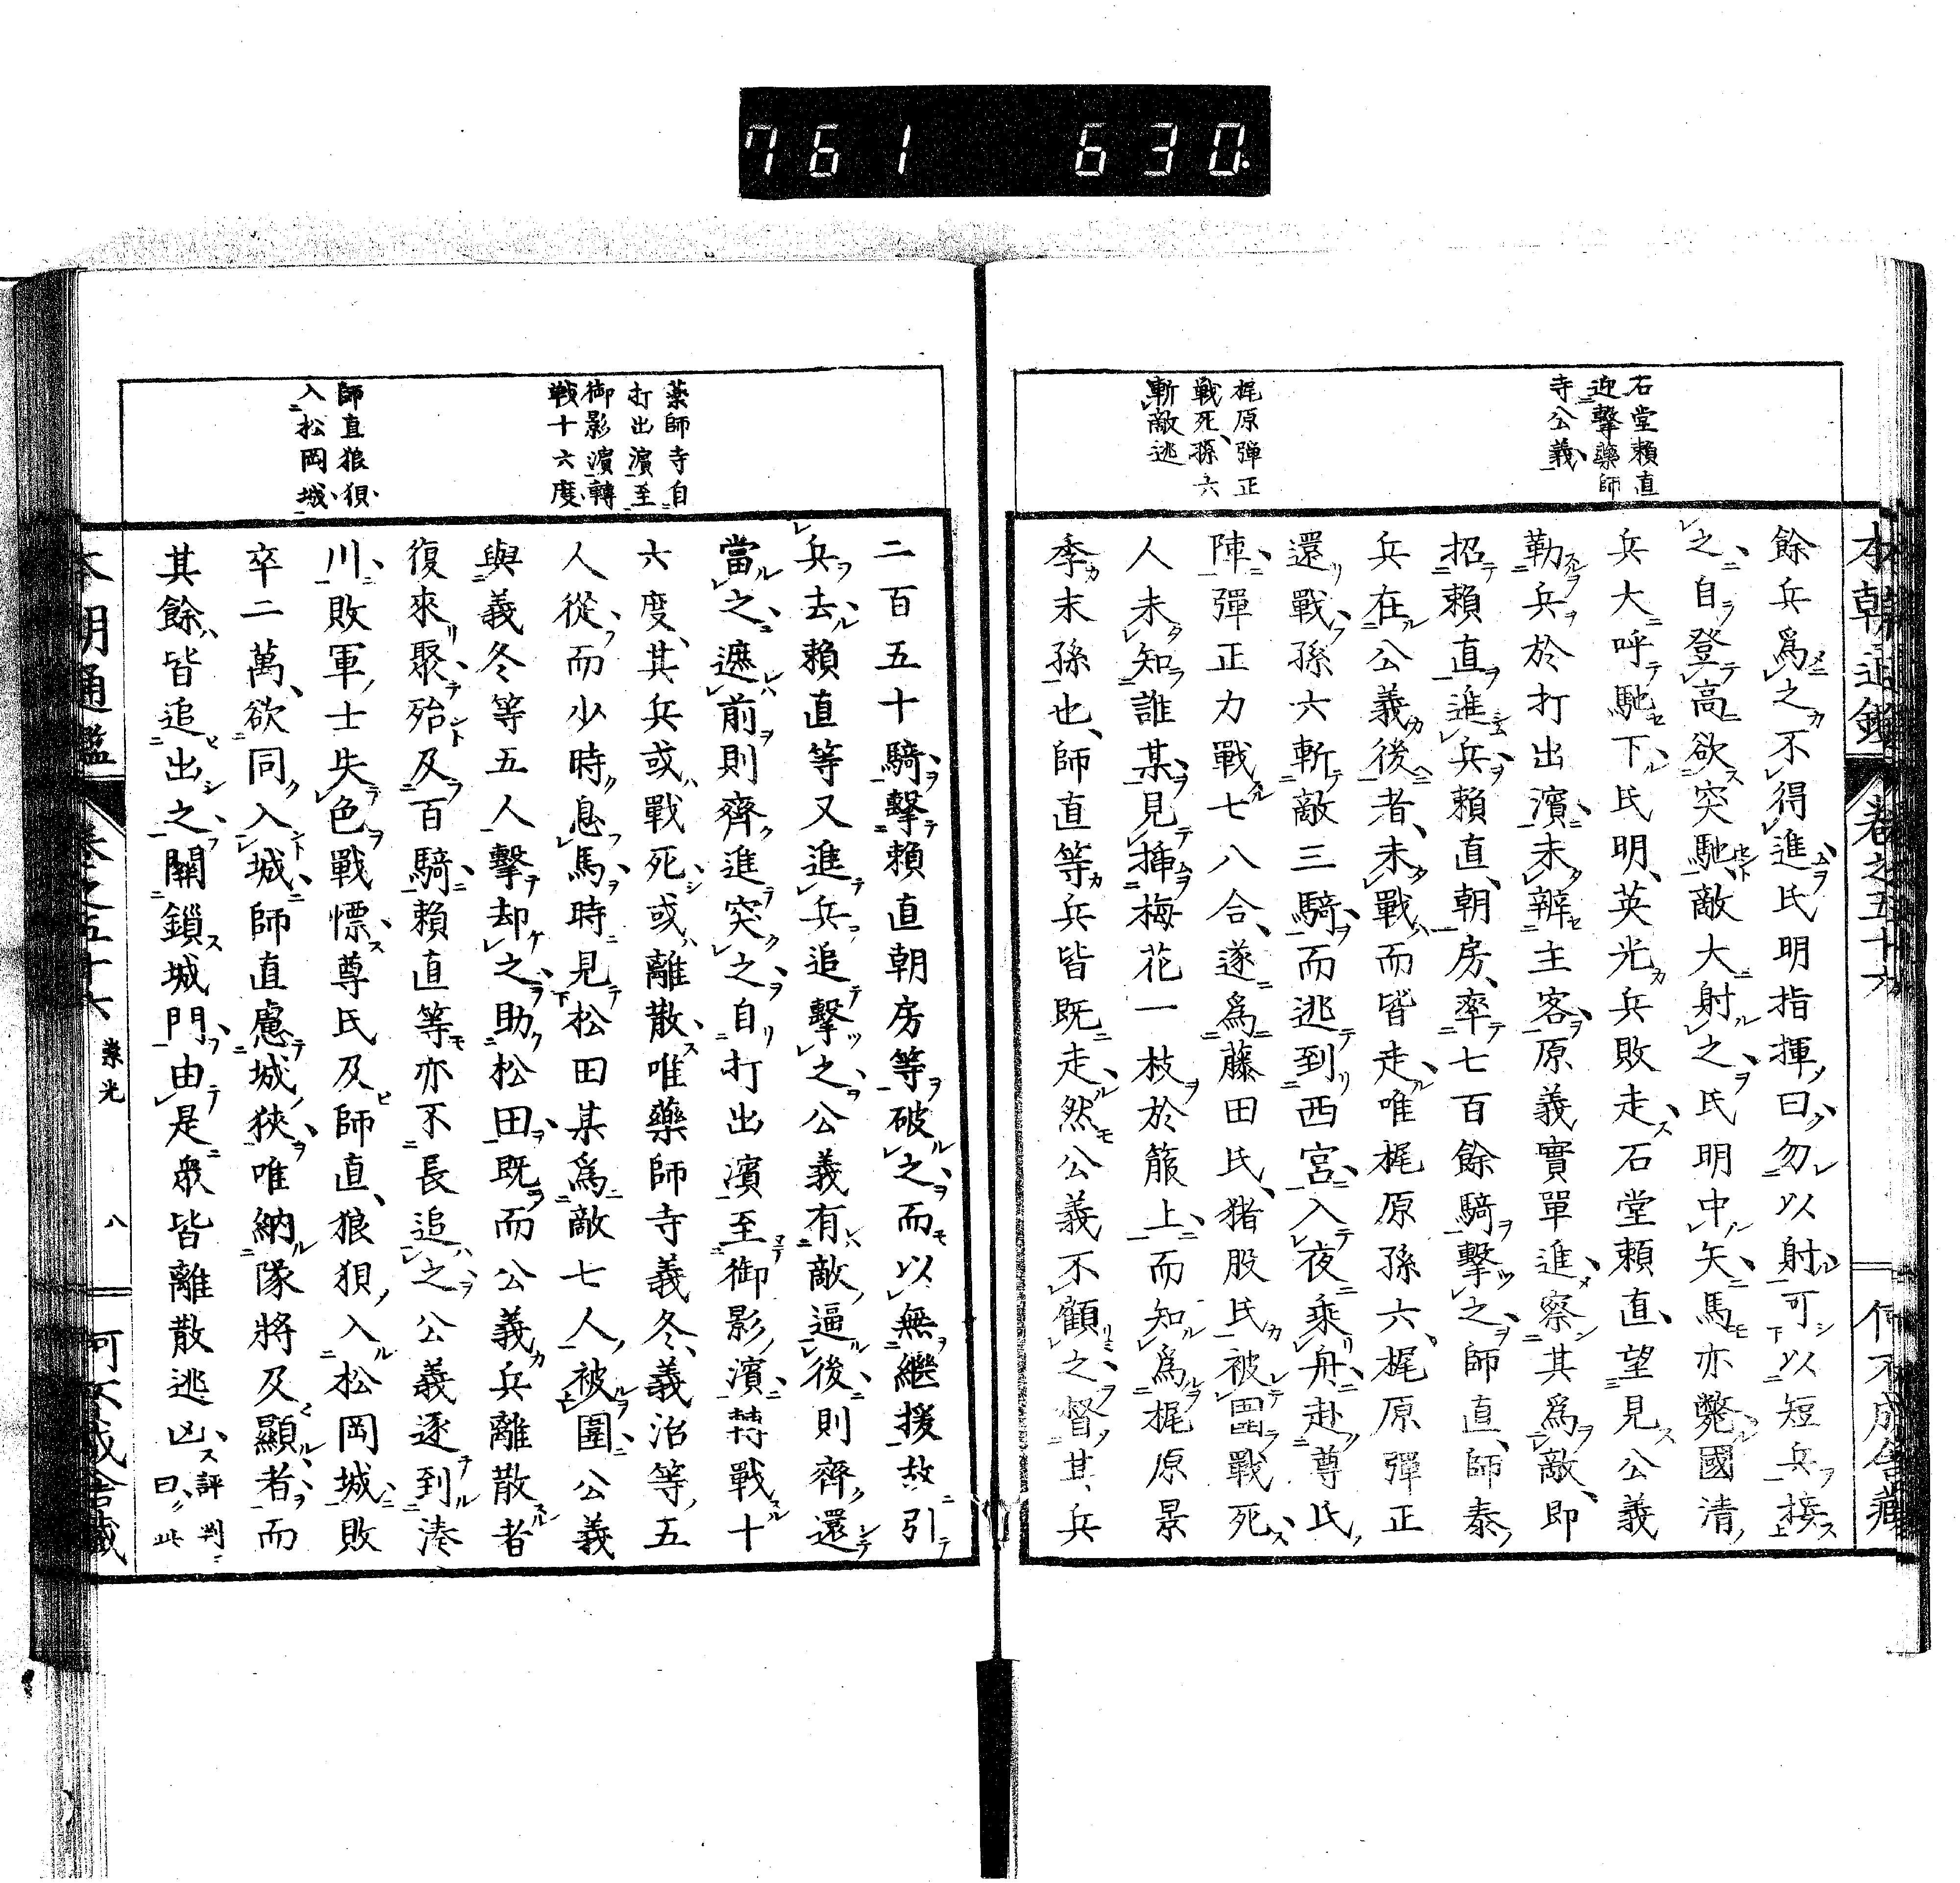 761 630
本朝通鑑 卷之五十六 何不成舍藏
石堂頼直
迎擊藥師
寺公義
梶原彈正
戰死孫六
斬敵逃
餘兵爲之不得進氏明指揮曰勿以射可以短兵接
之自登高欲突馳敵大射之氏明中矢馬亦斃國清
兵大呼馳下氏明英光兵敗走石堂頼直望見公義
勒兵於打出濵未辨主客原義實單進察其爲敵即
招頼直進兵頼直朝房率七百餘騎擊之師直師泰
兵在公義後者未戰而皆走唯梶原孫六梶原彈正
還戰孫六斬敵三騎而逃到西宮入夜乘舟赴尊氏
陣彈正力戰七八合遂爲藤田氏猪股氏被圍戰死
人未知誰某見挿梅花一枝於箙上而知爲梶原景
季末孫也師直等兵皆既走然公義不顧之督其兵
藥師寺自
打出濵至
御影濵轉
戰十六度
師直狼狽
入松岡城
二百五十騎擊頼直朝房等破之而以無繼援故引
兵去頼直等又進兵追擊之公義有敵逼後則齊還
當之遮前則齊進突之自打出濵至御影濵轉戰十
六度其兵或戰死或離散唯藥師寺義冬義治等五
人從而少時息馬時見松田某爲敵七人被圍公義
與義冬等五人擊却之助松田既而公義兵離散者
復來聚殆及百騎頼直等亦不長追之公義逐到湊
川敗軍士失色戰慓尊氏及師直狼狽入松岡城敗
卒二萬欲同入城師直慮城狹唯納隊將及顯者而
其餘皆追出之關鎖城門由是衆皆離散逃凶評判曰此
本朝通鑑 卷之五十六 崇光 八 何不成舍藏